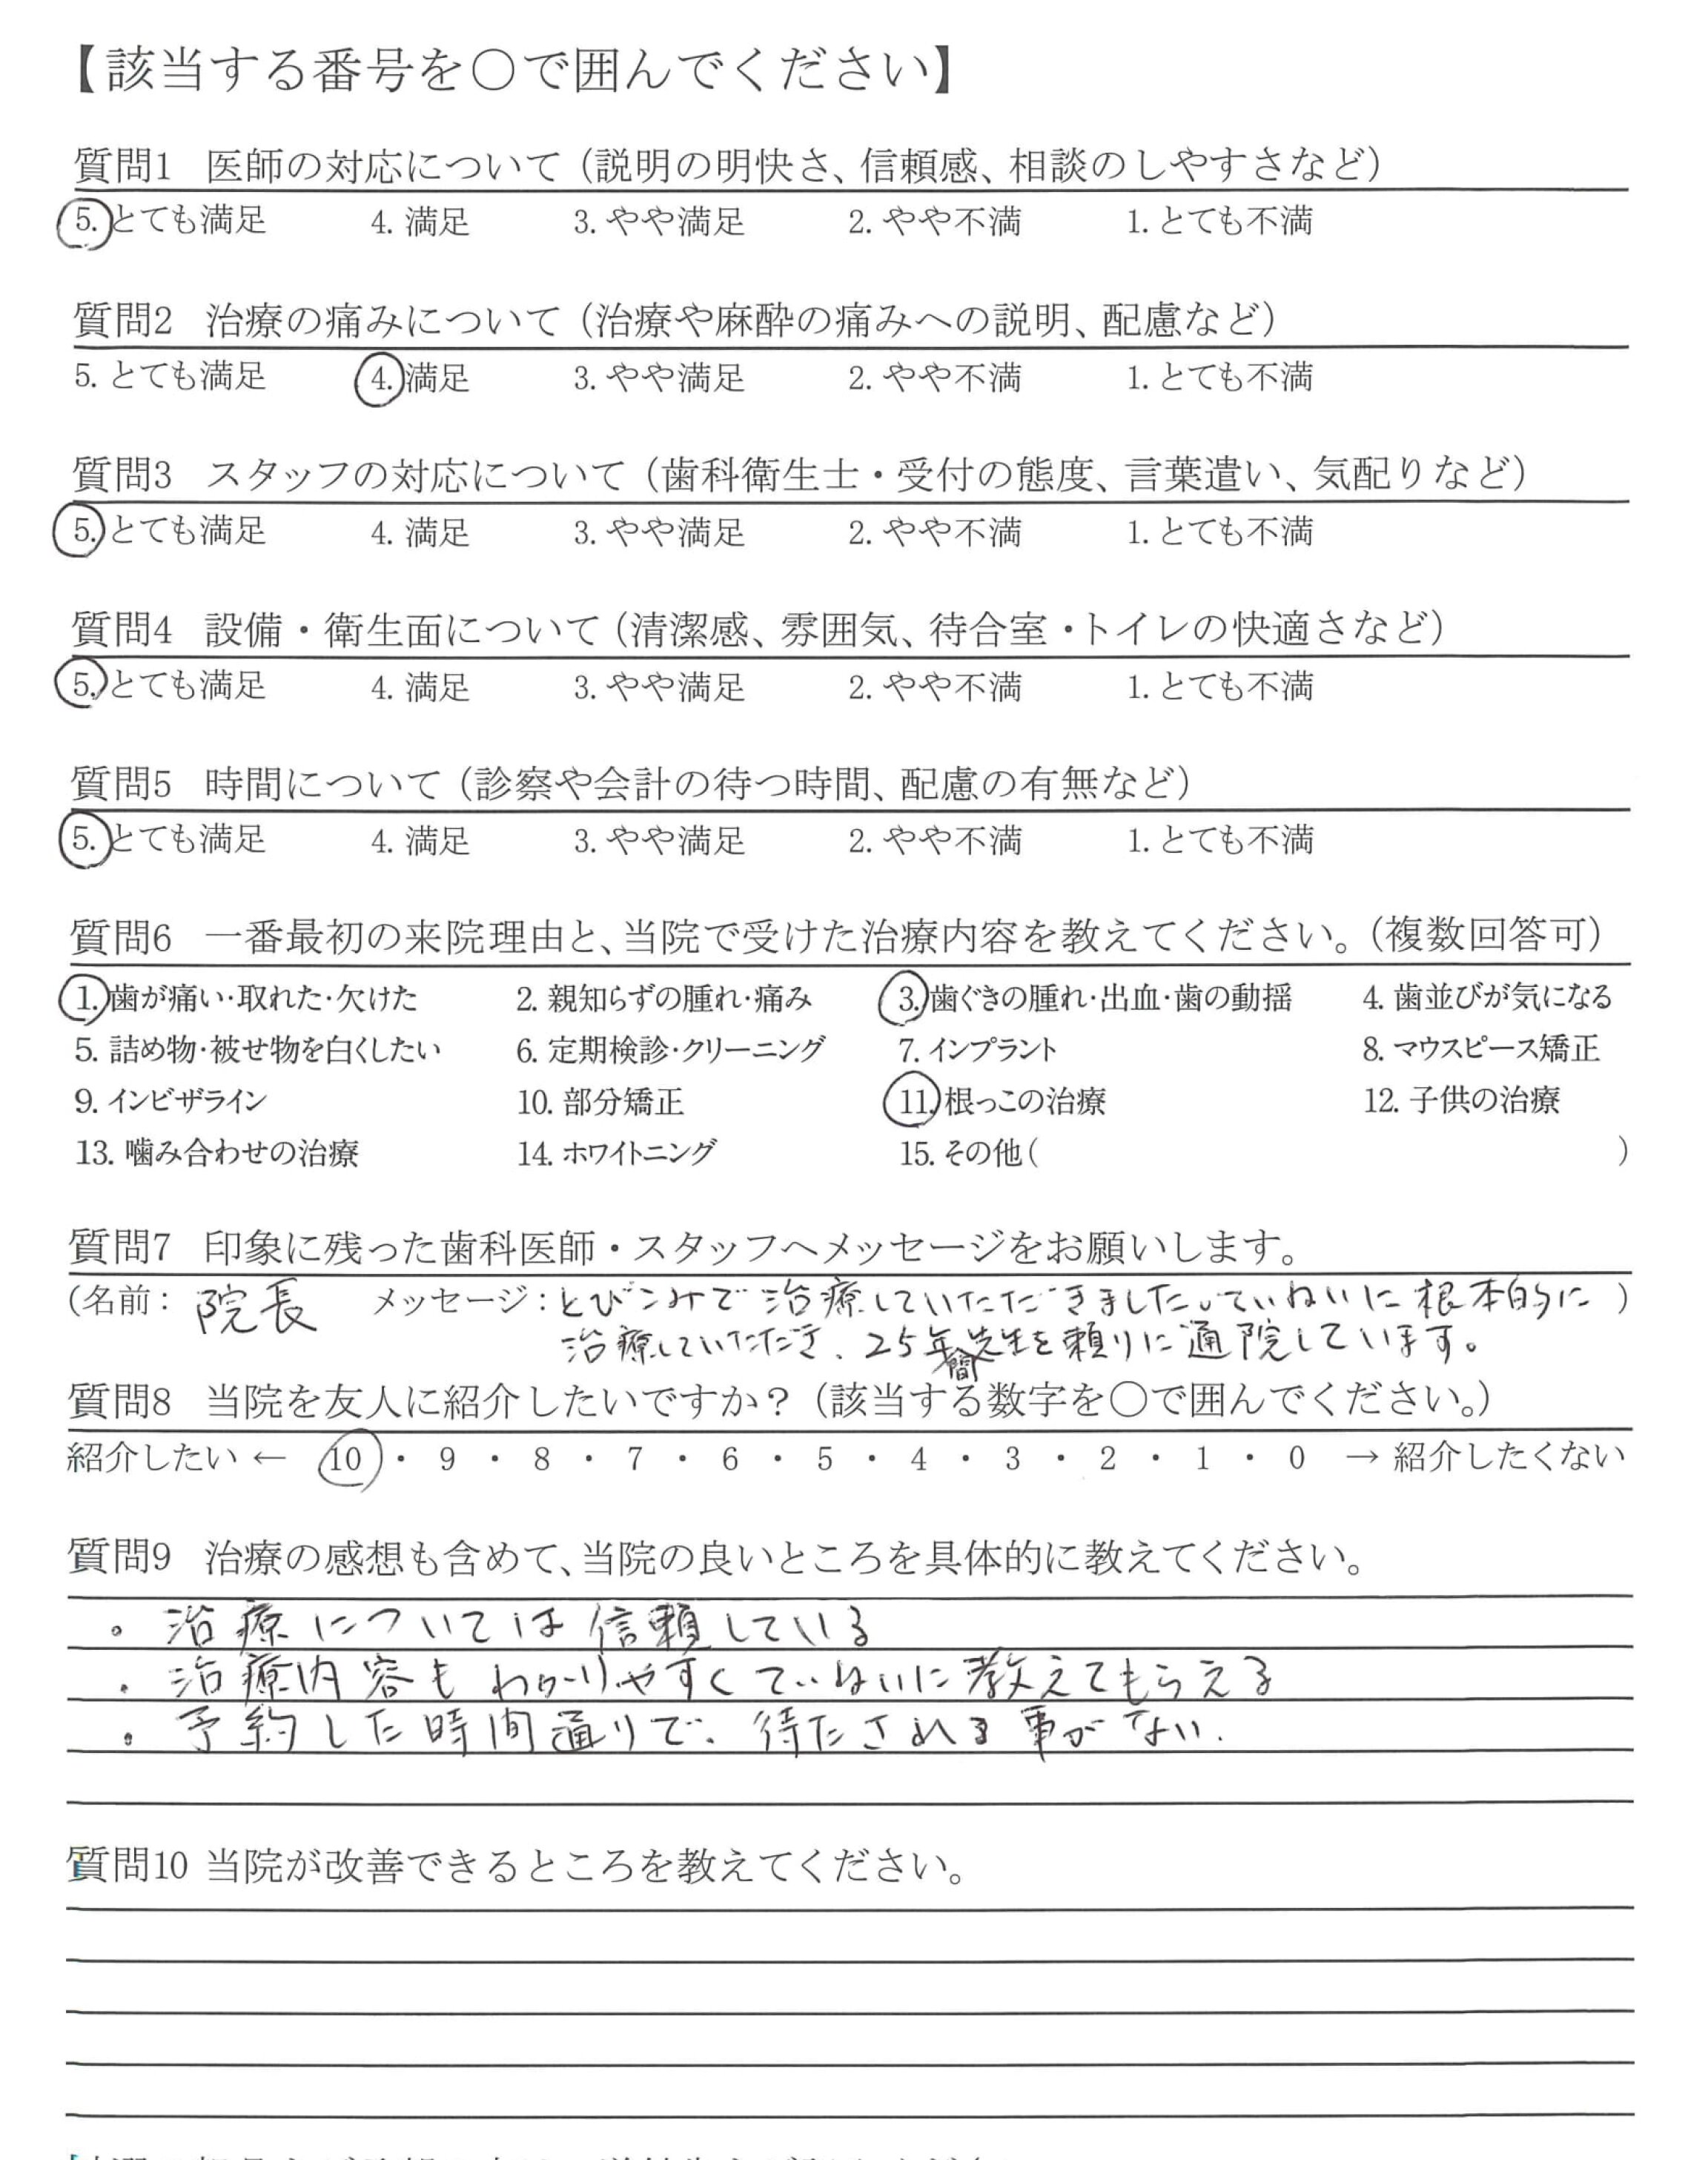 【該当する番号を○で囲んでください】
質問1 医師の対応について（説明の明快さ、信頼感、相談のしやすさなど）
5. とても満足 4. 満足 3. やや満足 2. やや不満 1. とても不満
質問2 治療の痛みについて（治療や麻酔の痛みへの説明、配慮など）
5. とても満足 4. 満足 3. やや満足 2. やや不満 1. とても不満
質問3 スタッフの対応について（歯科衛生士・受付の態度、言葉遣い、気配りなど）
5. とても満足 4. 満足 3. やや満足 2. やや不満 1. とても不満
質問4 設備・衛生面について（清潔感、雰囲気、待合室・トイレの快適さなど）
5. とても満足 4. 満足 3. やや満足 2. やや不満 1. とても不満
質問5 時間について（診察や会計の待つ時間、配慮の有無など）
5. とても満足 4. 満足 3. やや満足 2. やや不満 1. とても不満
質問6 一番最初の来院理由と、当院で受けた治療内容を教えてください。（複数回答可）
1. 歯が痛い・取れた・欠けた 2. 親知らずの腫れ・痛み 3. 歯ぐきの腫れ・出血・歯の動揺 4. 歯並びが気になる
5. 詰め物・被せ物を白くしたい 6. 定期検診・クリーニング 7. インプラント 8. マウスピース矯正
9. インビザライン 10. 部分矯正 11. 根っこの治療 12. 子供の治療
13. 噛み合わせの治療 14. ホワイトニング 15. その他（ ）
質問7 印象に残った歯科医師・スタッフへメッセージをお願いします。
（名前：院長 メッセージ：とびこみで治療していただきました。ていねいに根本的に ）
治療していただき、25年間先生を頼りに通院しています。
質問8 当院を友人に紹介したいですか？（該当する数字を○で囲んでください。）
紹介したい ← 10 ・ 9 ・ 8 ・ 7 ・ 6 ・ 5 ・ 4 ・ 3 ・ 2 ・ 1 ・ 0 → 紹介したくない
質問9 治療の感想も含めて、当院の良いところを具体的に教えてください。
・治療については信頼している
・治療内容もわかりやすくていねいに教えてもらえる
・予約した時間通りで、待たされる事がない.
質問10 当院が改善できるところを教えてください。